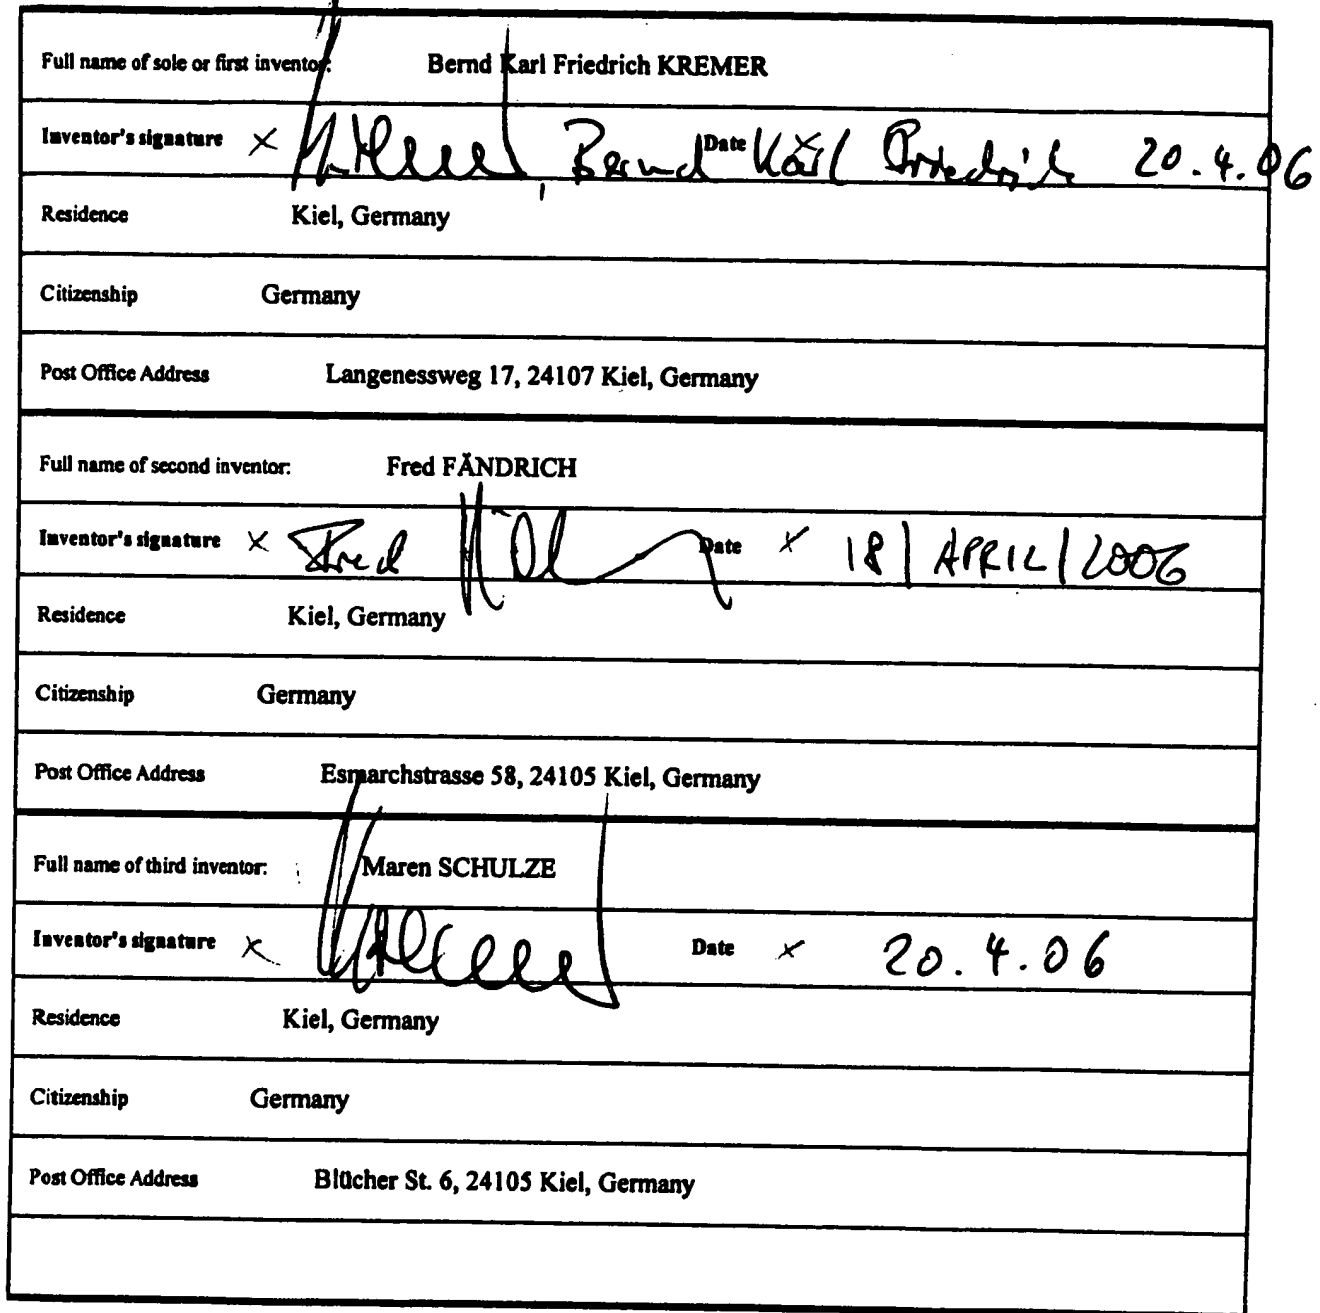 Full name of sole or first inventor: Bernd Karl Friedrich KREMER
Inventor's signature × , Bernd Date Karl × Friedrich 20.4.06
Residence Kiel, Germany
Citizenship Germany
Post Office Address Langenessweg 17, 24107 Kiel, Germany
Full name of second inventor: Fred FÄNDRICH
Inventor's signature × Fred Date × 18 | APRIL | 2006
Residence Kiel, Germany
Citizenship Germany
Post Office Address Esmarchstrasse 58, 24105 Kiel, Germany
Full name of third inventor: Maren SCHULZE
Inventor's signature × Date × 20.4.06
Residence Kiel, Germany
Citizenship Germany
Post Office Address Blücher St. 6, 24105 Kiel, Germany